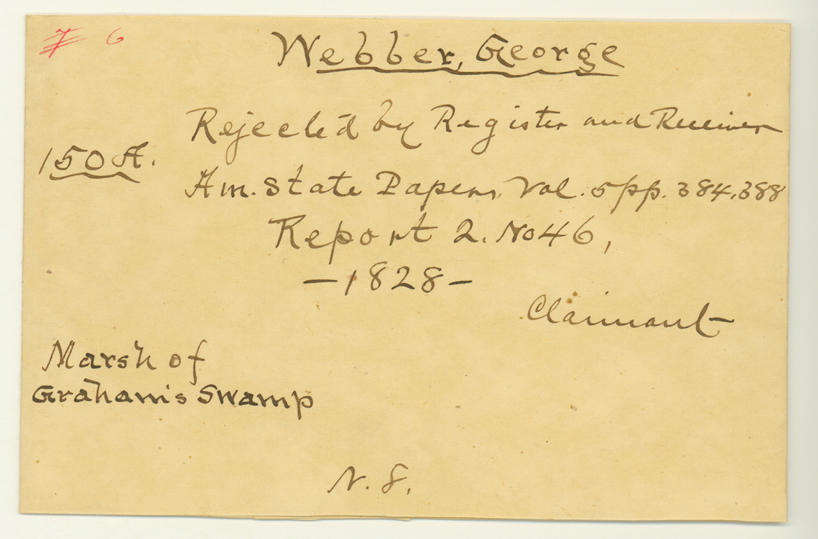 7 6
Webber, George
Rejected by Register and Receiver
150 A.
Am. State Papers, Vol. 5 pp. 384, 388
Report 2. No 46,
—1828—
Claimant
Marsh of
Graham's Swamp
N. S.